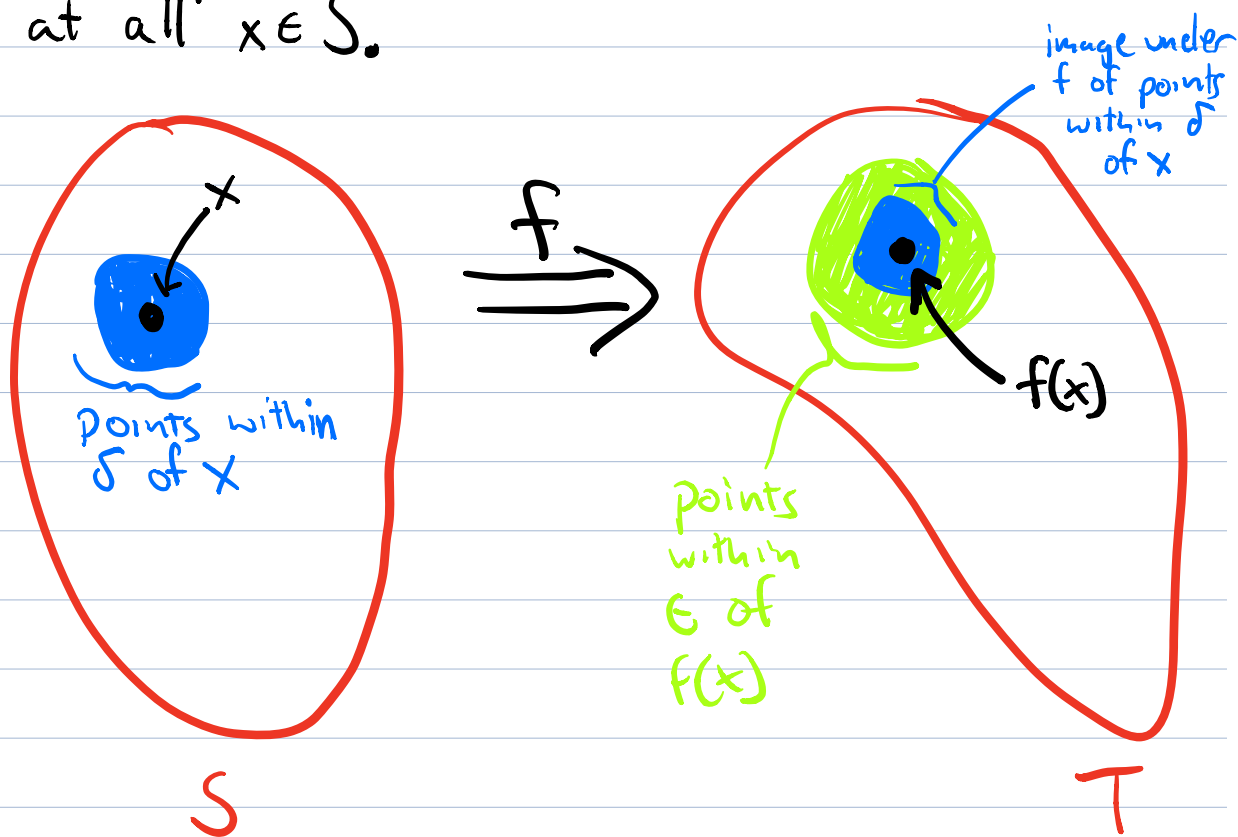 at all x ∈ S.
image under
f of points
within δ
of x
x
f
f(x)
points within
δ of x
points
within
ϵ of
f(x)
S
T